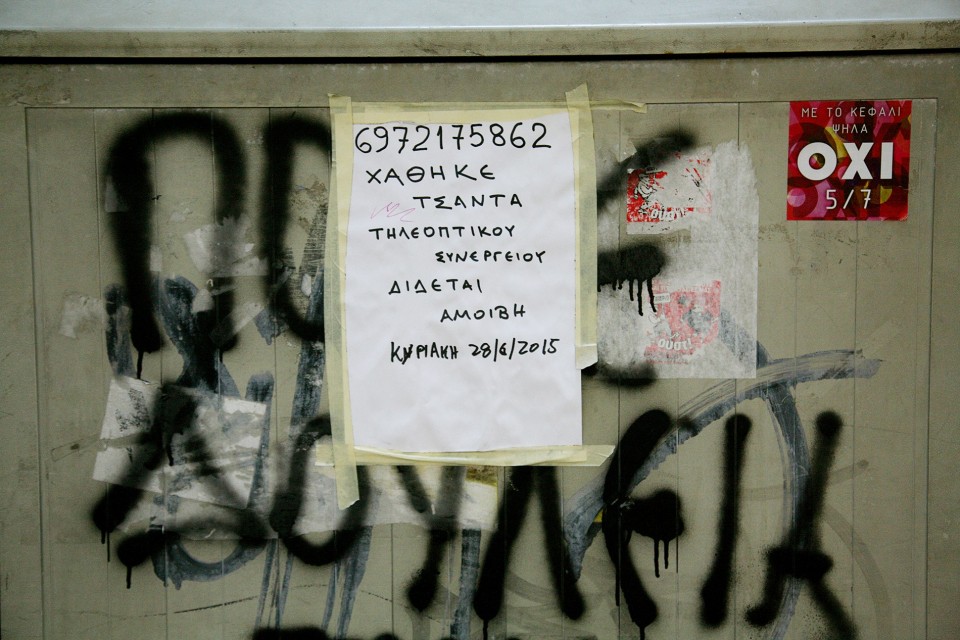 6972175862
ΧΑΘΗΚΕ
ΤΣΑΝΤΑ
ΤΗΛΕΟΠΤΙΚΟΥ
ΣΥΝΕΡΓΕΙΟΥ
ΔΙΔΕΤΑΙ
ΑΜΟΙΒΗ
ΚΥΡΙΑΚΗ 28/6/2015
ΜΕ ΤΟ ΚΕΦΑΛΙ
ΨΗΛΑ
ΟΧΙ
5/7
ουστ!
ουστ!